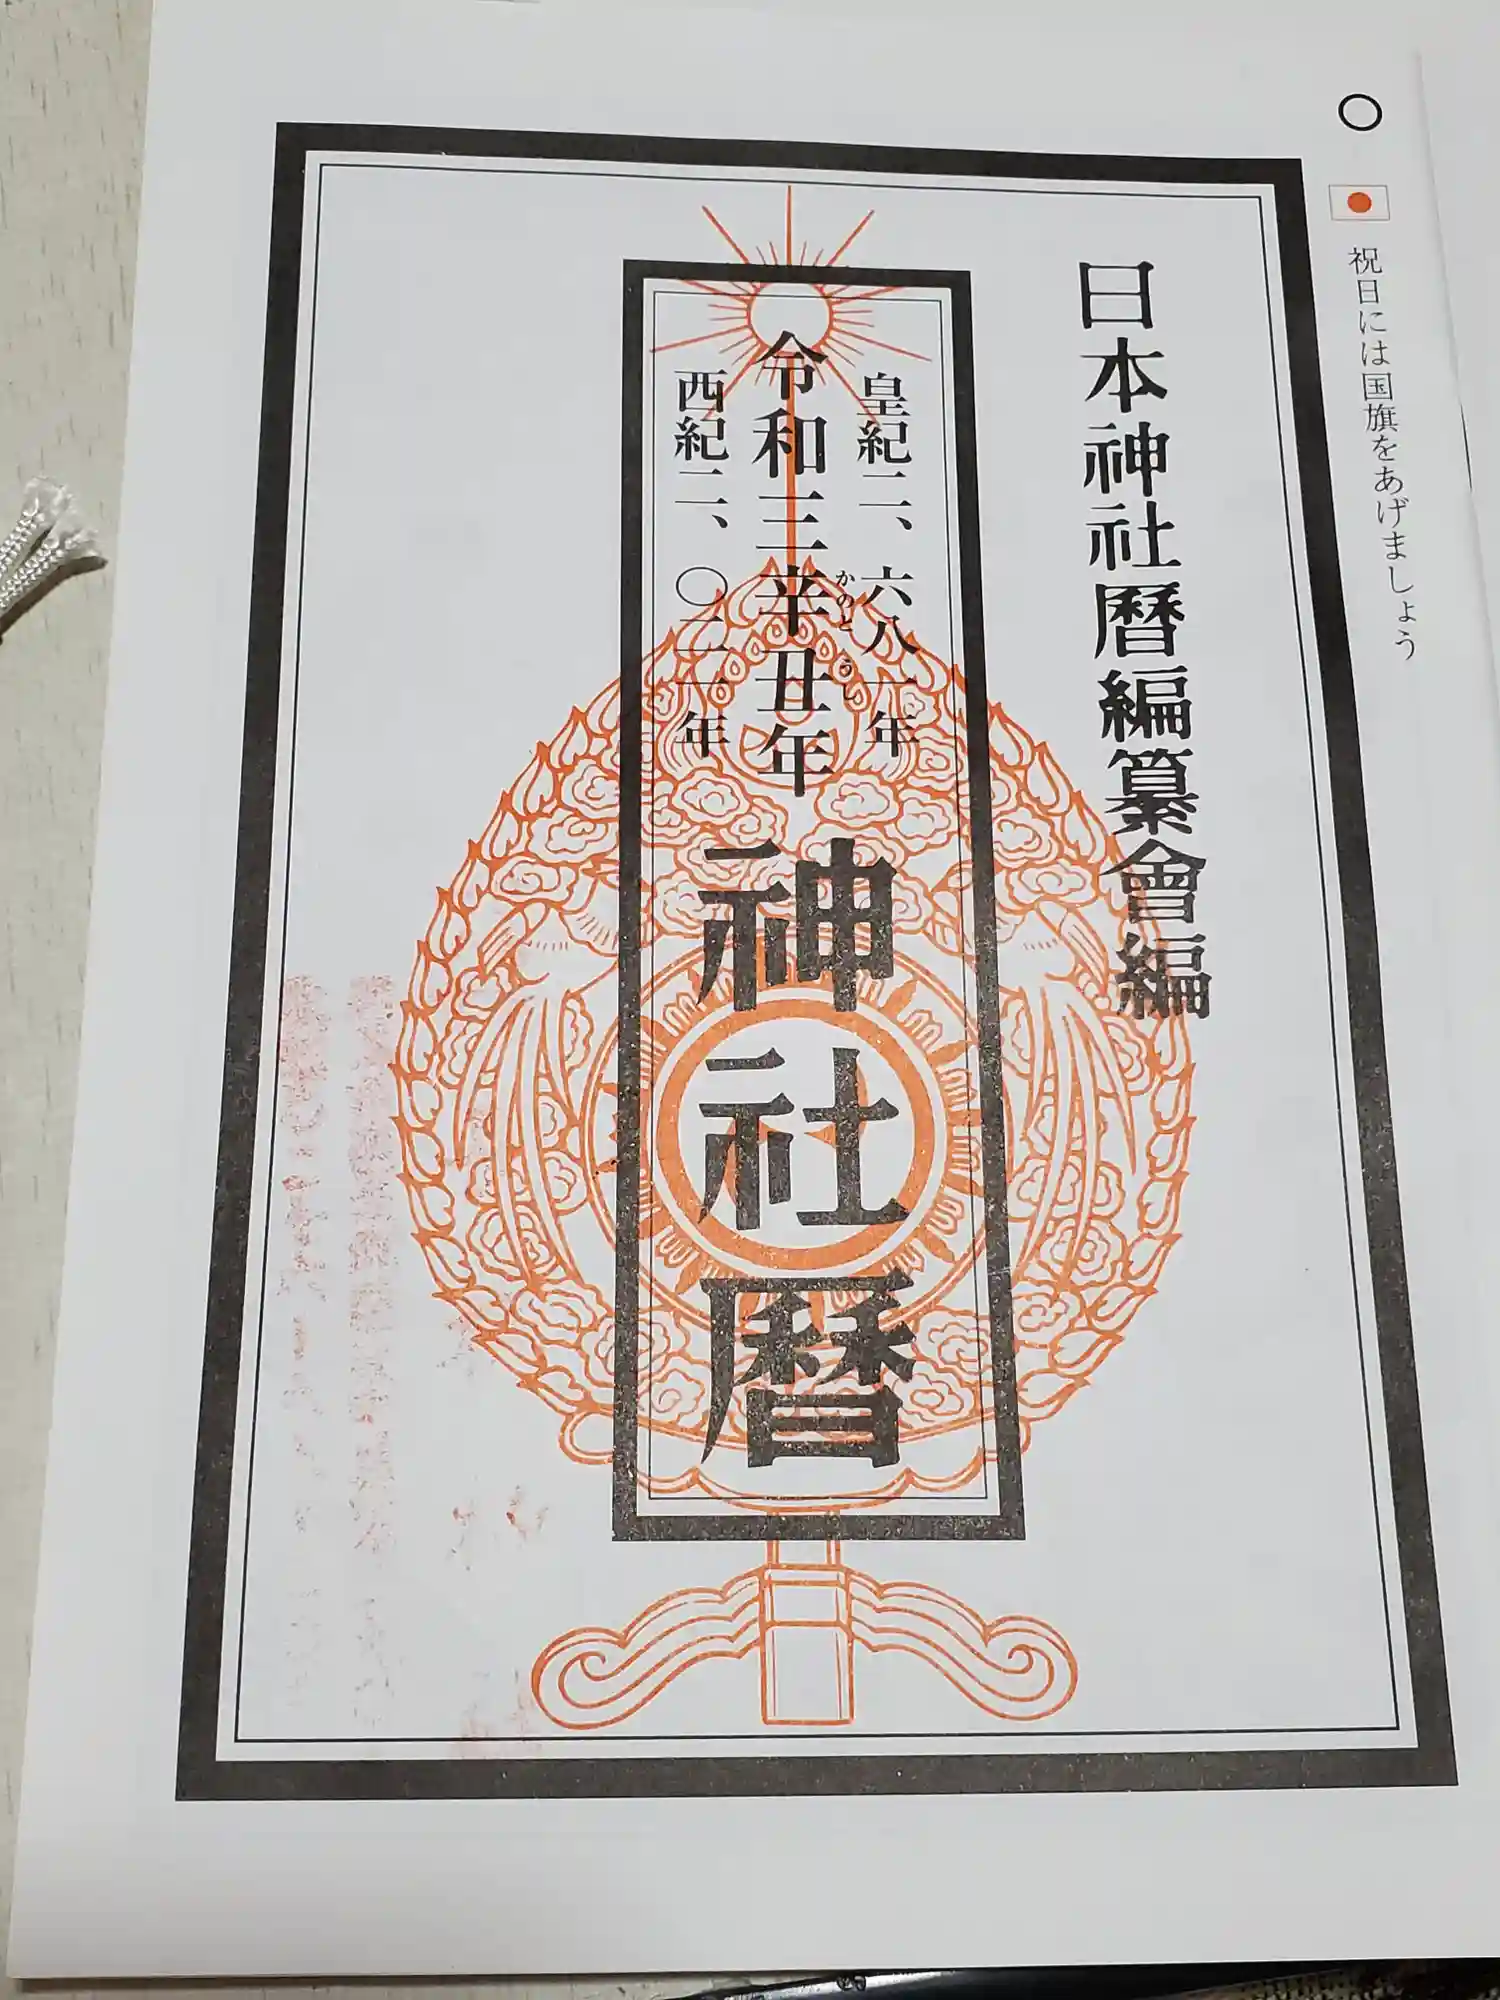 祝日には国旗をあげましょう
日本神社暦編纂會編
皇紀二、六八一年
令和三辛丑年
かのと うし
西紀二、〇二一年
神社暦